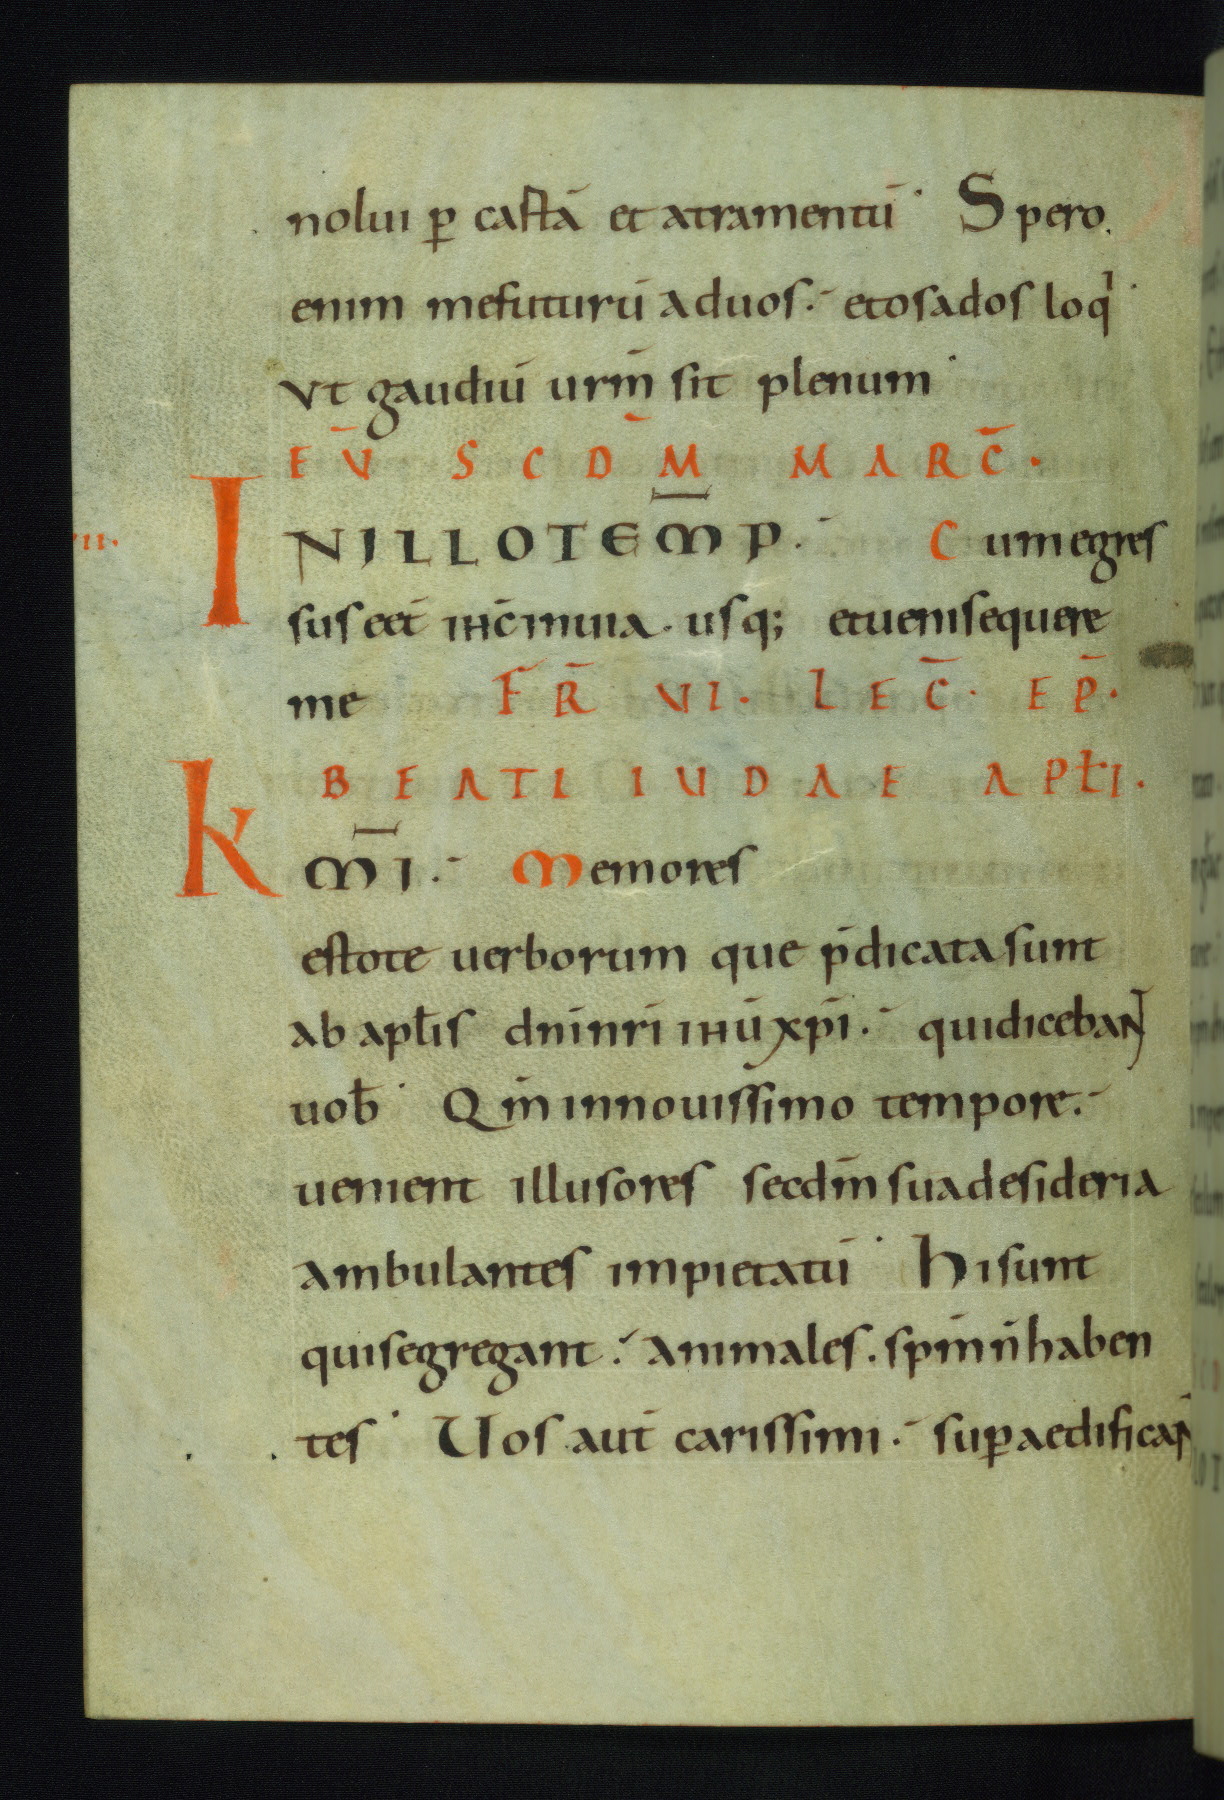 nolui ꝑ castā et atramentū. Spero
enim mefuturū aduos. etosados loqͥ.
Vt gaudiū urm̄ sit plenum.
EṼ SCDM̄ MARC̄.
INILLOTEM̄P. Cumegres
VII.
susēet ihc̄ inuia. usq; etuenisequere
me FR̄ VI. LEC̄. EP̄.
BEATI IUDAE APƚI.
KM̄I. Memores
estote uerborum que p̄dicatasunt
ab apƚis dn̄inr̄i ihū xp̄i. quidicebaN̄
uob̄. Qm̄ innouissimo tempore.
uenient illusores secdm̄ suadesideria
ambulantes impietatū. Hisunt
quisegregant. animales. spm̄ n̄ haben
tes. Uos aut̄ carissimi. suꝑaedificaN